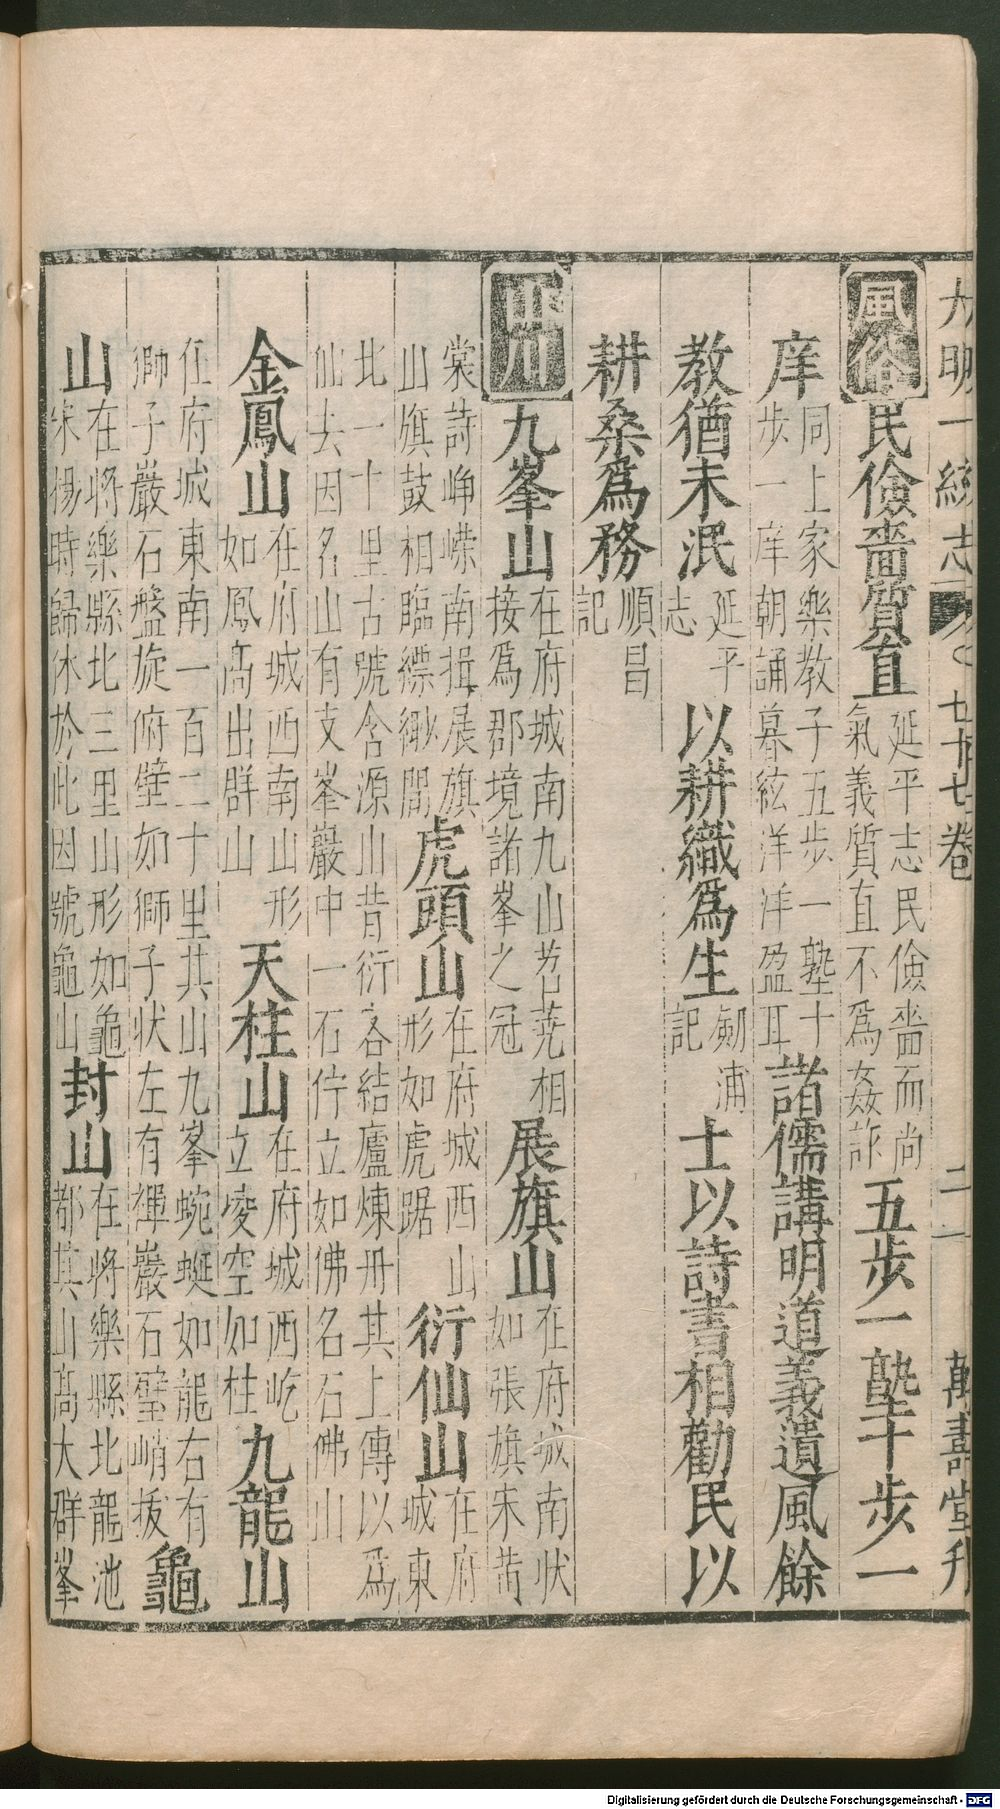 大明一統志 七十七卷 二 萬壽堂刋
風俗 民儉嗇質直 延平志民儉嗇而尚氣義質直不爲姦詐 五步一塾十步一
庠 同上家樂教子五步一塾十步一庠朝誦暮絃洋洋盈耳 諸儒講明道義遺風餘
教猶未泯 延平志 以耕織爲生 劒浦記 士以詩書相勸民以
耕桑爲務 順昌記
山川 九峯山 在府城南九山岧嶤相接爲郡境諸峯之冠 展旗山 在府城南狀如張旗宋黃
棠詩崢嶸南揖展旗山旗鼓相臨縹緲間 虎頭山 在府城西山形如虎踞 衍仙山 在府城東
北一十里古號含源山昔衍客結廬煉丹其上傳以爲仙去因名山有支峯巖中一石佇立如佛名石佛山
金鳳山 在府城西南山形如鳳高出群山 天柱山 在府城西屹立凌空如柱 九龍山
在府城東南一百二十里其山九峯蜿蜒如龍右有獅子巖石盤旋俯壁如獅子狀左有獋巖石壁峭拔 龜
山 在將樂縣北三里山形如龜宋楊時歸休於此因號龜山 封山 在將樂縣北龍池都其山高大群峯
Digitalisierung gefördert durch die Deutsche Forschungsgemeinschaft - DFG